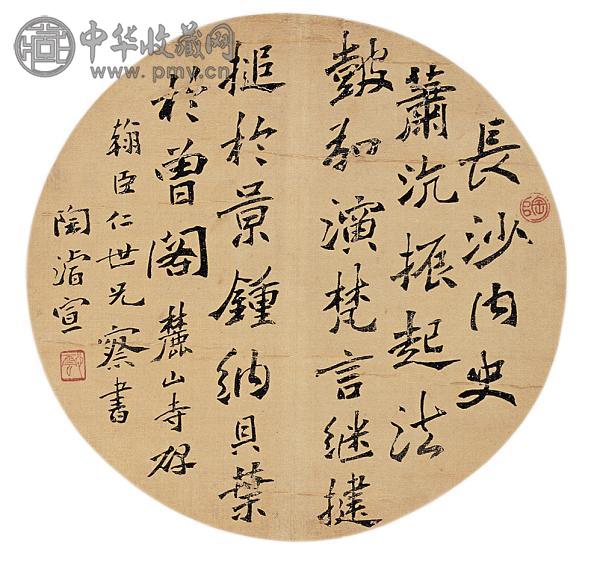 中华收藏网
www.pmy.cn
長沙内史
蕭沆振起法
皷演梵言継揵
搥於景鍾納貝葉
於曾閣 麓山寺碑
翰臣仁世兄察書
陶濬宣